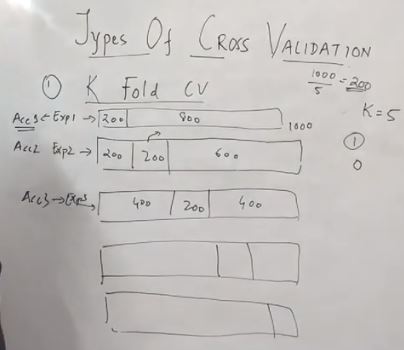 Types Of Cross Validation
1000/5 = 200
① K Fold CV
K = 5
Acc1 ← Exp1 → 200 800
1000
①
Acc2 Exp2 → 200 200 600
0
Acc3 → Exp3 400 200 400